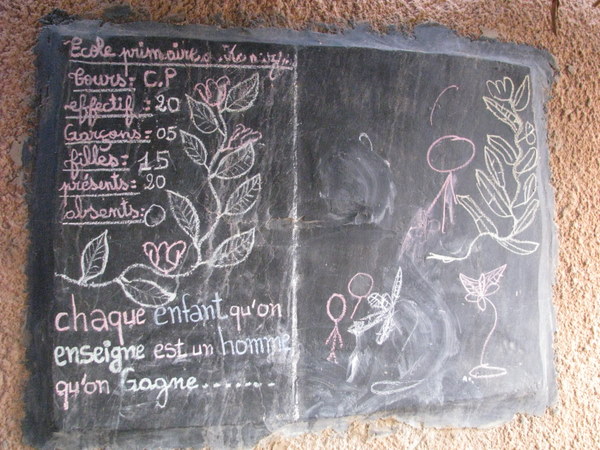 Ecole primaire
Cours: C.P
effectif: 20
Garçons: 05
filles: 15
présents: 20
absents: 0
chaque enfant qu'on
enseigne est un homme
qu'on Gagne.......